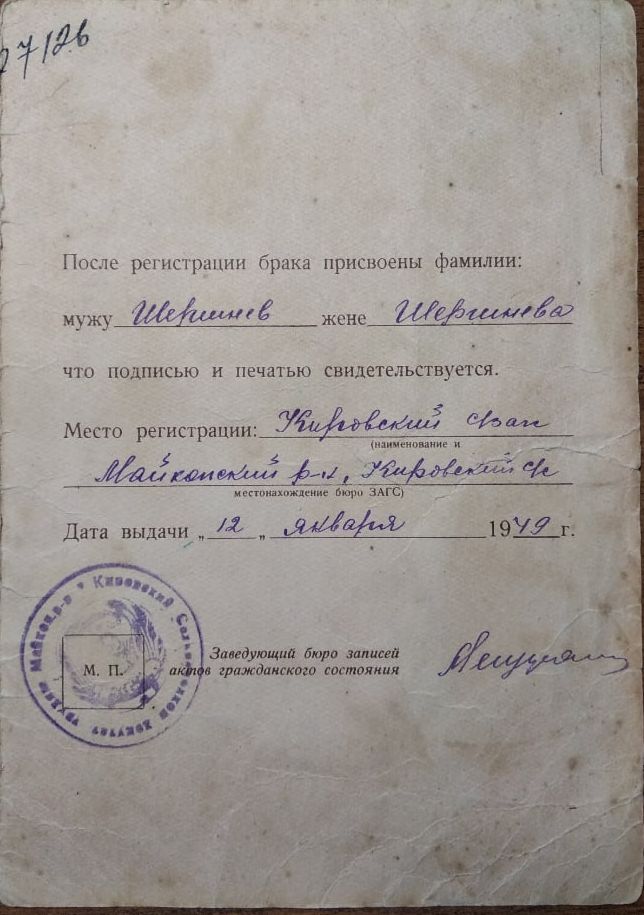 27/26
После регистрации брака присвоены фамилии:
мужу Шершнев жене Шершнева
что подписью и печатью свидетельствуется.
Место регистрации: Кировский
(наименование и
Майкопский р-н, Кировский с/с
местонахождение бюро ЗАГС)
Дата выдачи „12„ января 1949 г.
Майкоп. р-н * Кировский
М. П.
Заведующий бюро записей
актов гражданского состояния